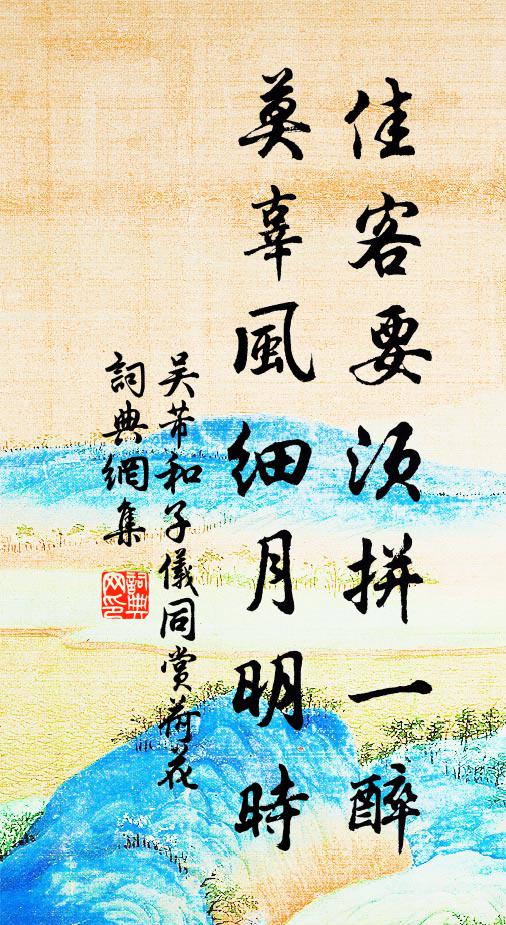 佳客要須拼一醉
莫辜風細月明時
吴芾和子儀同賞荷花
詞典網集
詞典網印